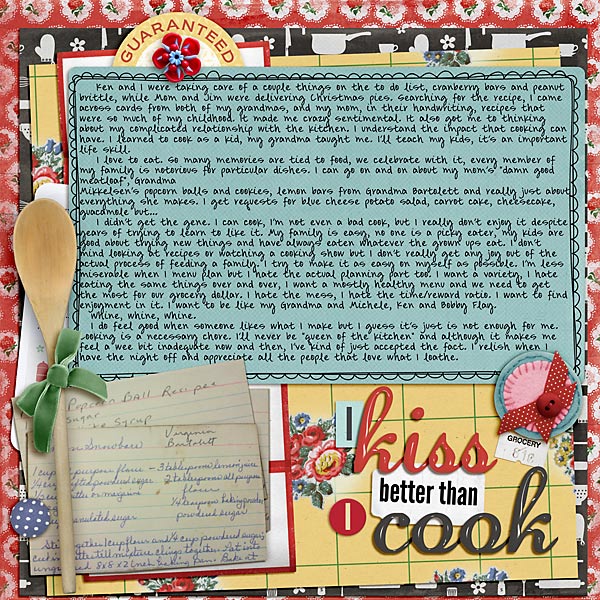 GUARANTEED
Ken and I were taking care of a couple things on the to do list, cranberry bars and peanut
brittle, while Mom and Jim were delivering Christmas pies. Searching for the recipe, I came
across cards from both of my grandmas, and my mom, in their handwriting, recipes that
were so much of my childhood. It made me crazy sentimental. It also got me to thinking
about my complicated relationship with the kitchen. I understand the impact that cooking can
have. I learned to cook as a kid, my grandma taught me. I'll teach my kids, it's an important
life skill.
I love to eat. So many memories are tied to food, we celebrate with it, every member of
my family is notorious for particular dishes. I can go on and on about my mom's "damn good
meatloaf", Grandma
Mikkelsen's popcorn balls and cookies, lemon bars from Grandma Bartolett and really just about
everything she makes. I get requests for blue cheese potato salad, carrot cake, cheesecake,
guacamole but...
I didn't get the gene. I can cook, I'm not even a bad cook, but I really don't enjoy it despite
years of trying to learn to like it. My family is easy, no one is a picky eater, my kids are
good about trying new things and have always eaten whatever the grown ups eat. I don't
mind looking at recipes or watching a cooking show but I don't really get any joy out of the
actual process of feeding a family. I try to make it as easy on myself as possible. I'm less
miserable when I menu plan but I hate the actual planning part too. I want a variety, I hate
eating the same things over and over, I want a mostly healthy menu and we need to get
the most for our grocery dollar. I hate the mess, I hate the time/reward ratio. I want to find
enjoyment in it. I want to be like my Grandma and Michele, Ken and Bobby Flay.
Whine, whine, whine.
I do feel good when someone likes what I make but I guess it's just is not enough for me.
Cooking is a necessary chore. I'll never be "queen of the kitchen" and although it makes me
feel a wee bit inadequate now and then, I've kind of just accepted the fact. I relish when I
have the night off and appreciate all the people that love what I loathe.
Popcorn Ball Recipes
Sugar
Syrup
Virginia
Bartolett
1 cup all purpose flour - 3 tablespoons lemon juice
2 tablespoons all purpose
flour
1/4 teaspoon baking powder
granulated sugar
powdered sugar
Stir together 1 cup flour and 1/4 cup powdered sugar;
cut in butter till mixture clings together. Pat into
ungreased 8x8x2 inch baking pan. Bake at
GROCERY
I kiss
better than
I cook